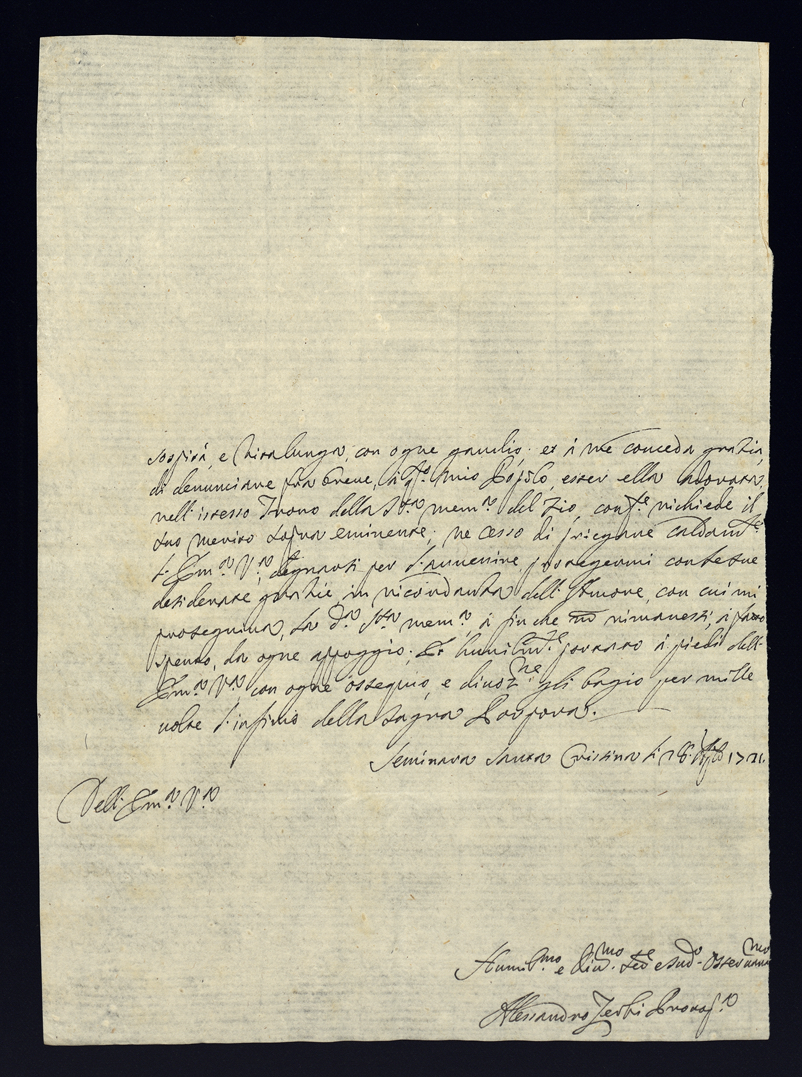 sospirà, e tira lunga, con ogne gaudio, et à me conceda gratia,
di denunciare frà breve, à q.to mio Popolo, esser ella adorata,
nell'istesso Trono della S.ta mem.a del Zio, con.e richiede il
suo merito sopra eminente; ne cesso di priegare caldam.te
l'Em.a V.a, degnarsi per l'avvenire, proteggermi con le sue
desiderate gratie, in ricordanza dell'Amore, con cui mi
proseguiva, la d.a S.ta mem.a à fin che non rimanessi,
spento, da ogne appoggio; Et humilm.te à piedi dell'
Em.a V.a con ogne ossequio, e divoz.ne gli bagio per mille
volte l'infimo della sagra Porpora.
Seminara Santa Cristina li 28 1721.
Dell'Em.a V.a
Humil.mo e div.mo se.e e sud.o osser.mo
Alessandro Zerbi